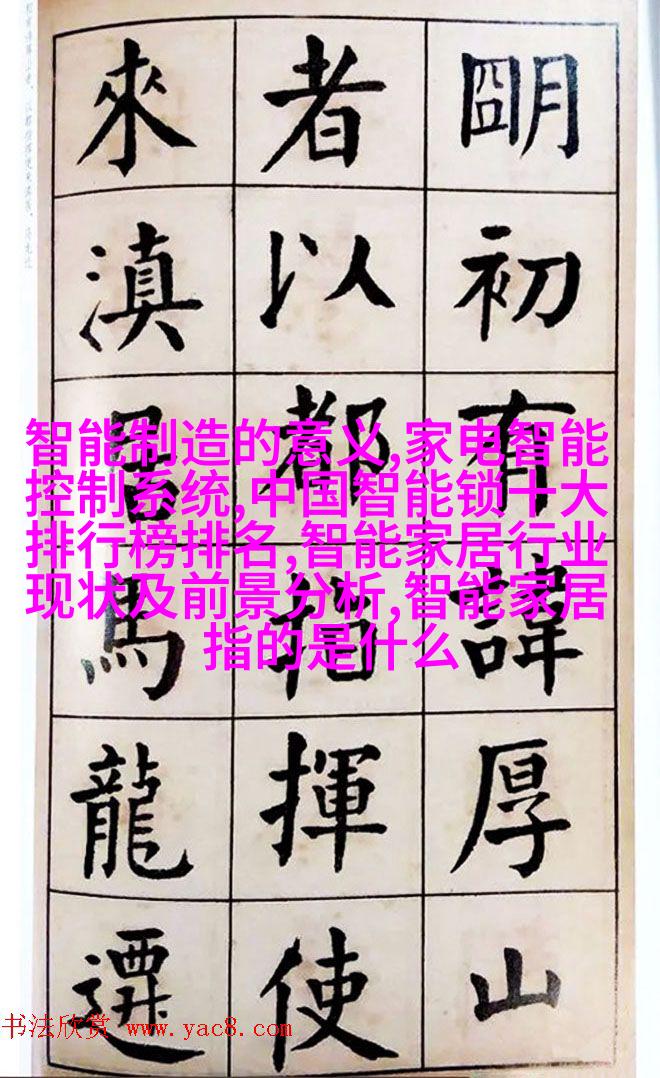 朙初有諱厚山
者以都指揮使
來滇居馬龍遷
智能制造的意义,家电智能
控制系统,中国智能锁十大
排行榜排名,智能家居行业
现状及前景分析,智能家居
指的是什么
书法欣赏 www.yac8.com